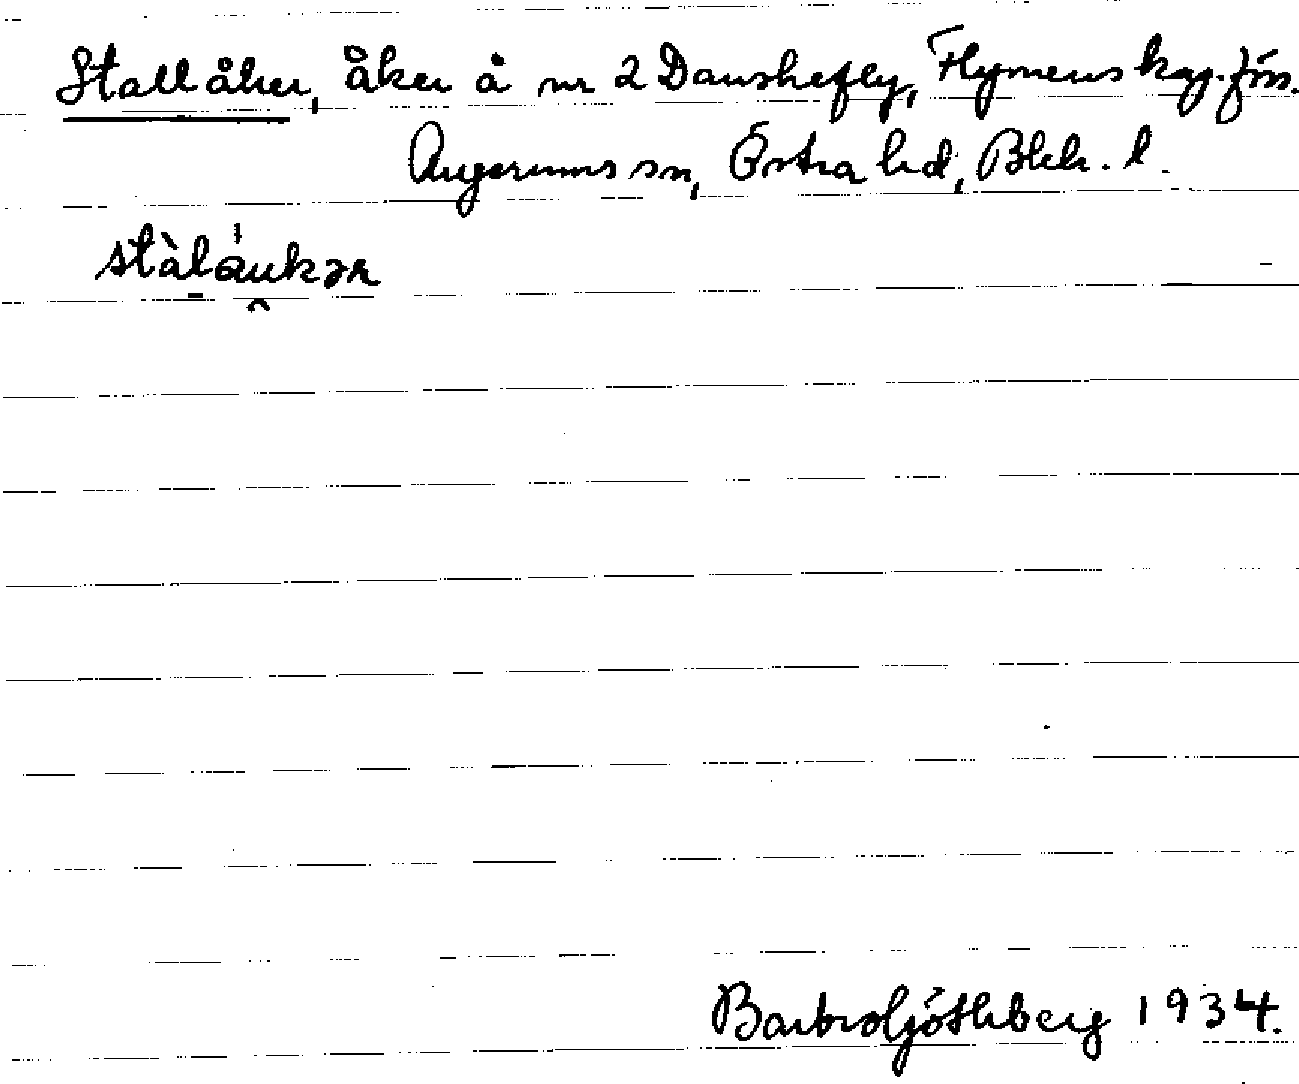 Stallåker, åker å nr 2 Danskefly, Flymens kgg.förs.
Augerums sn, Östra hd, Blek. l.
stàláukər
Barbro Göthberg 1934.